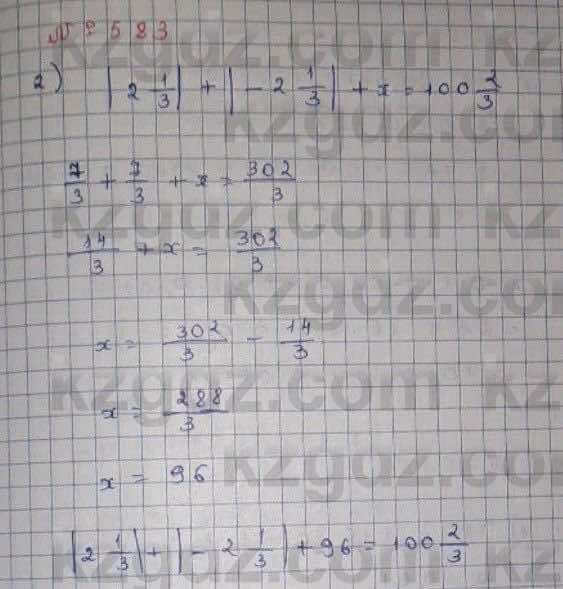 № 583
2) |2 1/3| + |- 2 1/3| + x = 100 2/3
7/3 + 7/3 + x = 302/3
14/3 + x = 302/3
x = 302/3 - 14/3
x = 288/3
x = 96
|2 1/3| + |- 2 1/3| + 96 = 100 2/3
kzgdz.com